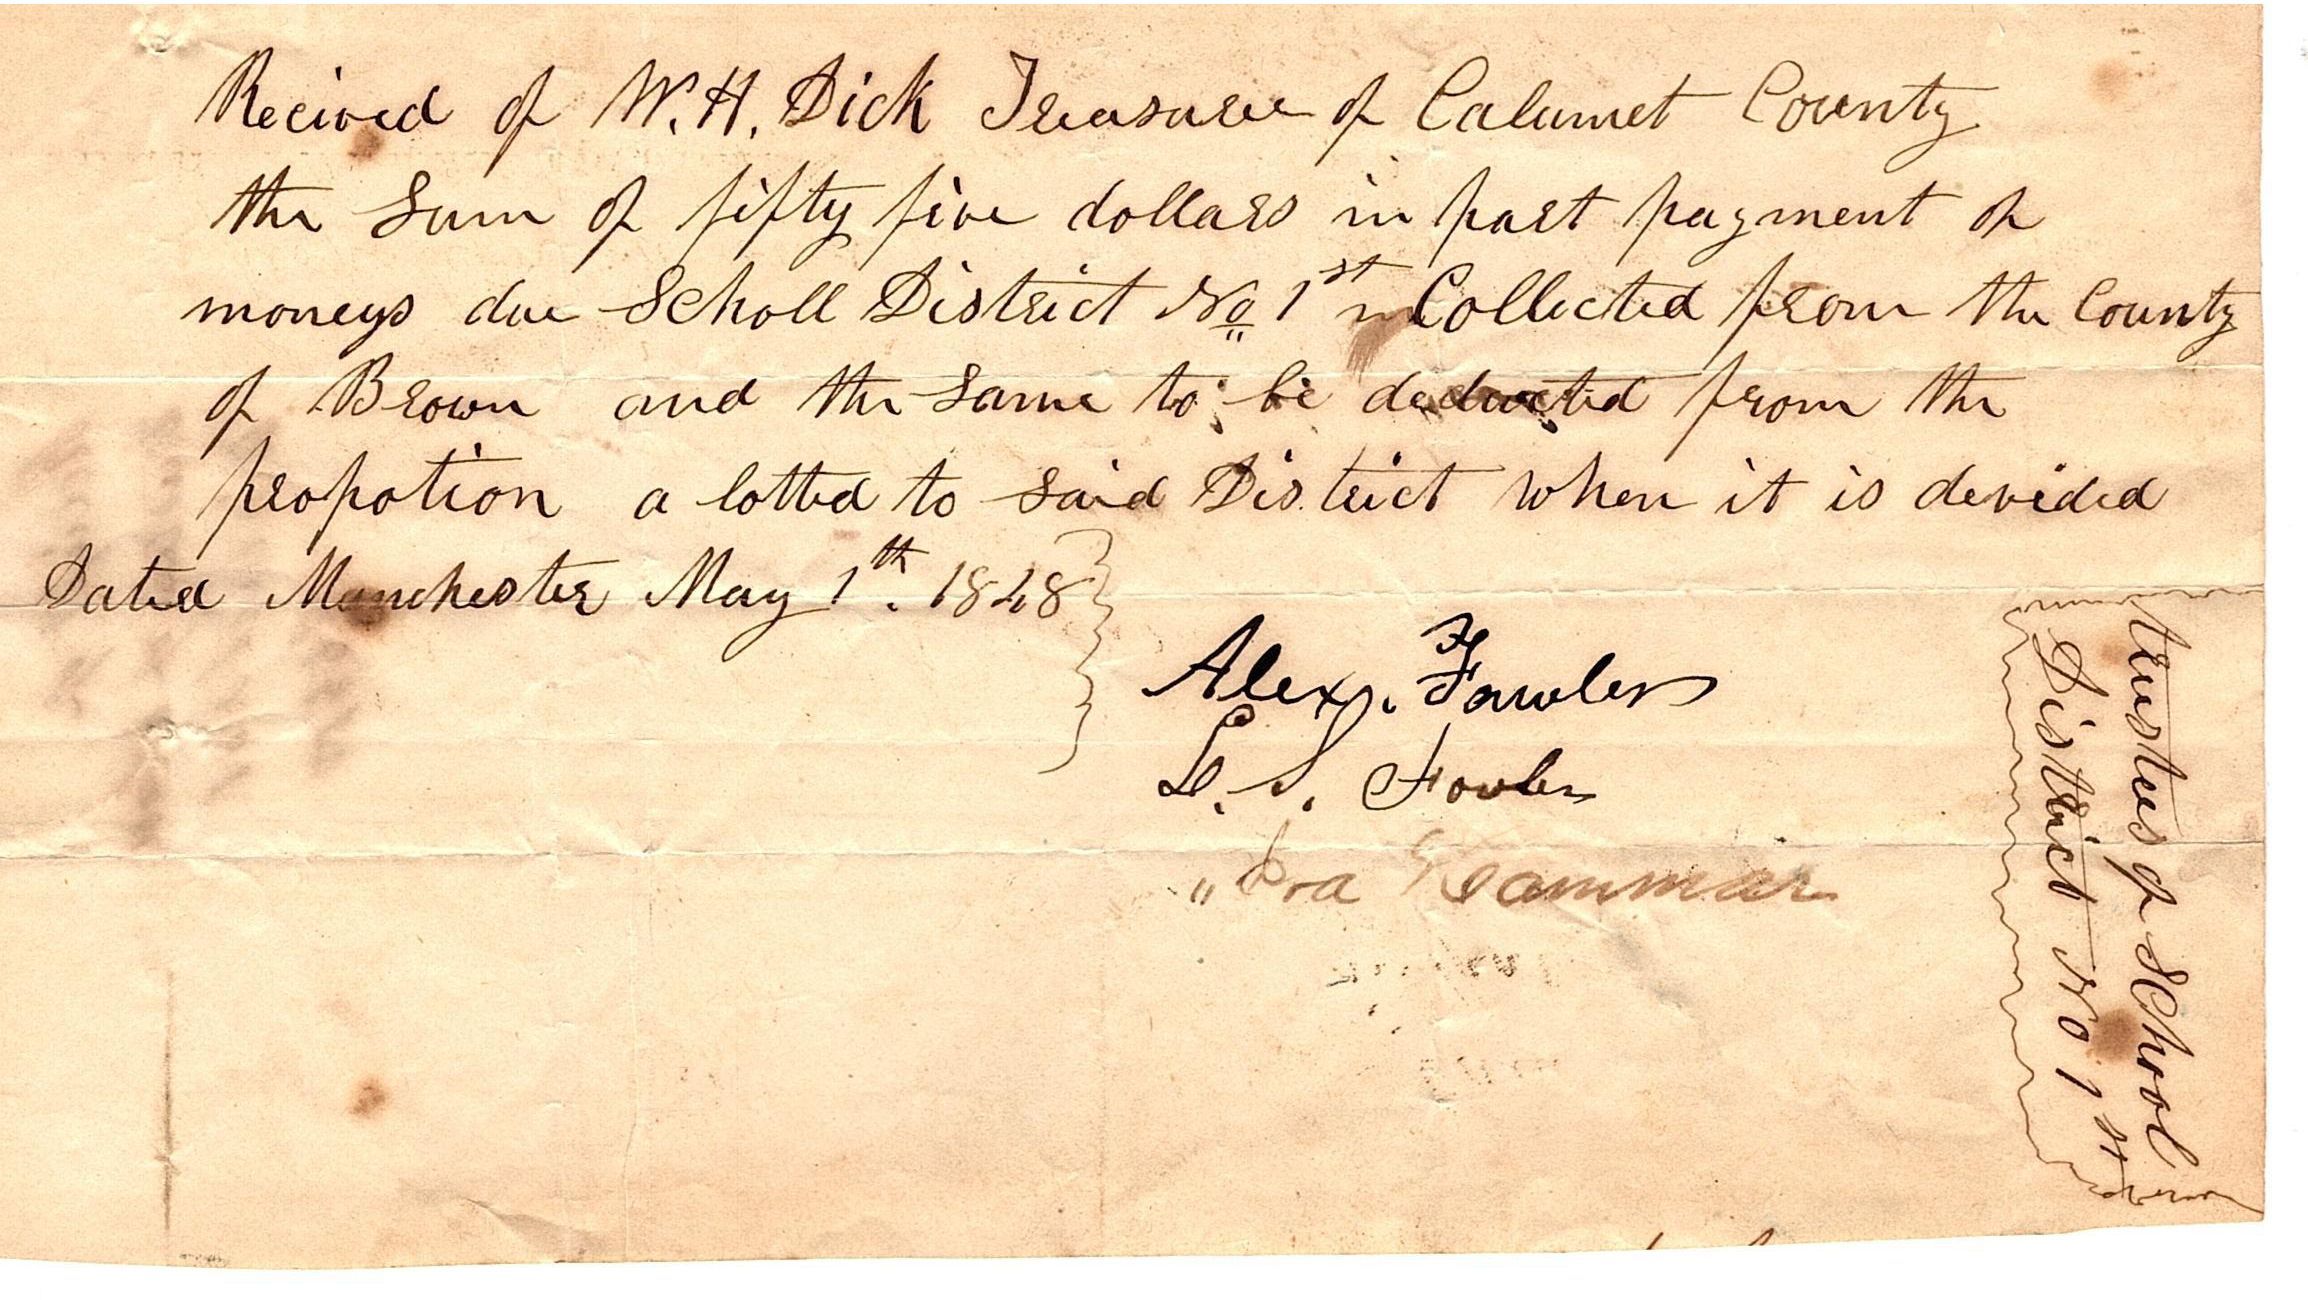 Recived of W. H. Dick Treasurer of Calumet County
the Sum of fifty five dollars in part payment of
moneys due Scholl District No 1st Collected from the County
of Brown and the same to be deducted from the
propotion a lotted to said District when it is devided
Dated Manchester May 1th. 1848
Alex. Fowler
L. S. Fowler
" Hammar
trustees of School
District No 1st